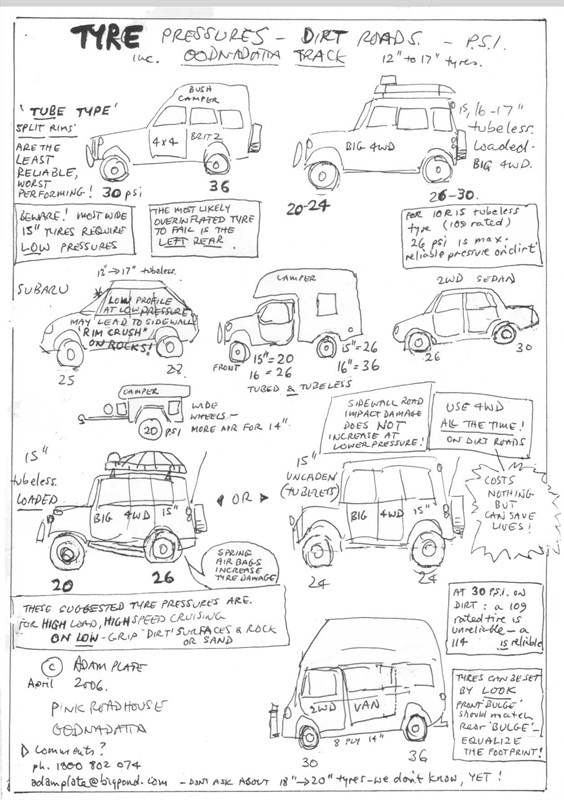 TYRE PRESSURES - DIRT ROADS. - P.S.I.
inc. OODNADATTA TRACK 12" to 17" tyres.
'TUBE TYPE'
SPLIT RIMS
ARE THE
LEAST
RELIABLE,
WORST
PERFORMING! 30 psi
BUSH
CAMPER
4x4 BRITZ
36
15, 16-17"
tubeless.
Loaded-
BIG 4WD.
BIG 4WD
20-24
26-30.
BEWARE! MOST WIDE
15" TYRES REQUIRE
LOW PRESSURES
THE MOST LIKELY
OVERINFLATED TYRE
TO FAIL IS THE
LEFT REAR.
FOR 10R15 tubeless
type (109 rated)
26 psi is max.
reliable pressure on 'dirt'
SUBARU
12" → 17" tubeless.
LOW PROFILE
AT LOW PRESSURE
MAY LEAD TO SIDEWALL
'RIM CRUSH'
ON ROCKS!
25
28
CAMPER
FRONT
15" = 20
16 = 26
15" = 26
16" = 36
TUBED & TUBELESS
2WD SEDAN
26
30
CAMPER
20 PSI
WIDE
WHEELS-
MORE AIR FOR 14".
SIDEWALL ROAD
IMPACT DAMAGE
DOES NOT
INCREASE AT
LOWER PRESSURE!
USE 4WD
ALL THE TIME!
ON DIRT ROADS
COSTS
NOTHING
BUT
CAN SAVE
LIVES!
15"
tubeless.
LOADED
BIG 4WD 15"
20
26
◄ OR ►
15"
UNLADEN
(TUBELESS)
BIG 4WD 15"
24
24
SPRING
AIR BAGS
INCREASE
TYRE DAMAGE
THESE SUGGESTED TYRE PRESSURES ARE.
FOR HIGH LOAD, HIGH SPEED CRUISING
ON LOW-GRIP 'DIRT' SURFACES & ROCK
OR SAND
AT 30 P.S.I. ON
DIRT: a 109
rated tire is
unreliable - a
114 is reliable
© ADAM PLATE
April 2006.
PINK ROADHOUSE
OODNADATTA
D Comments?
ph. 1800 802 074
adamplate@bigpond.com - DONT ASK ABOUT 18" → 20" tyres - we don't know, YET!
2WD VAN
8 PLY 14"
30
36
TYRES CAN BE SET
BY LOOK
FRONT 'BULGE'
should match
Rear 'BULGE' -
EQUALIZE
THE FOOTPRINT!